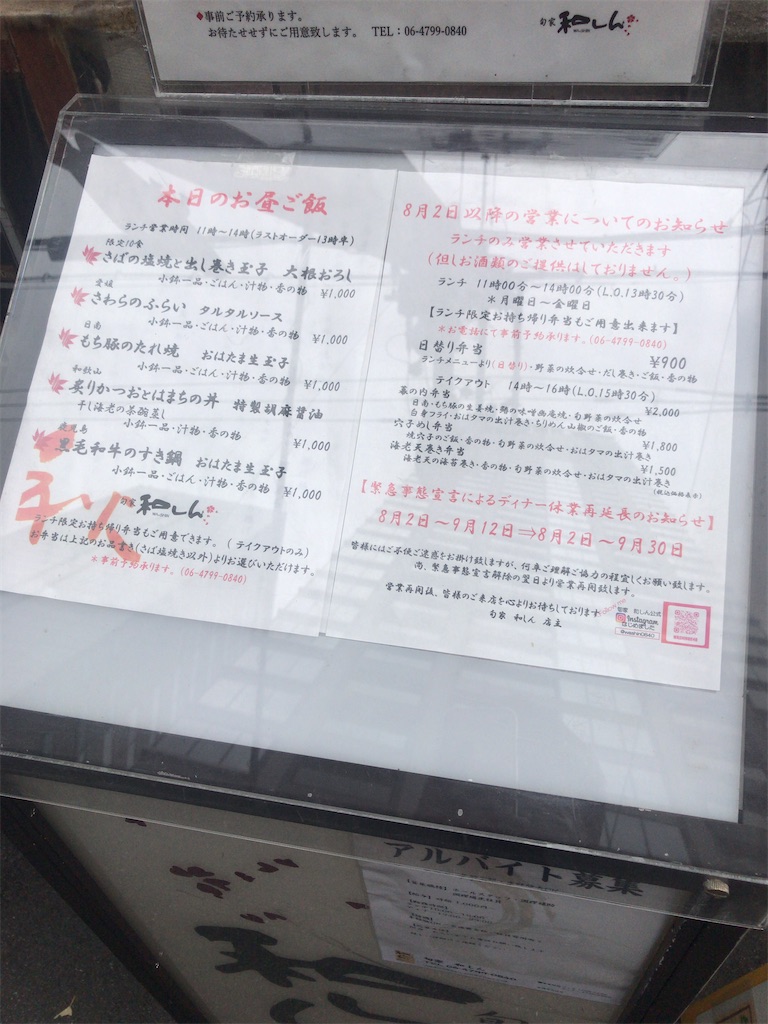 ◆事前ご予約承ります。
お待たせせずにご用意致します。 TEL：06-4799-0840
旬家 和しん
本日のお昼ご飯
ランチ営業時間 11時～14時(ラストオーダー13時半)
限定10食
さばの塩焼と出し巻き玉子 大根おろし
小鉢一品・ごはん・汁物・香の物 ¥1,000
愛媛
さわらのふらい タルタルソース
小鉢一品・ごはん・汁物・香の物 ¥1,000
日南
もち豚のたれ焼 おはたま生玉子
小鉢一品・ごはん・汁物・香の物 ¥1,000
和歌山
炙りかつおとはまちの丼 特製胡麻醤油
干し海老の茶碗蒸し
小鉢一品・汁物・香の物 ¥1,000
鹿児島
黒毛和牛のすき鍋 おはたま生玉子
小鉢一品・ごはん・汁物・香の物 ¥1,000
旬家 和しん
ランチ限定お持ち帰り弁当もご用意できます。（テイクアウトのみ）
お弁当は上記のお品書き(さば塩焼き以外)よりお選びいただけます。
＊事前予約承ります。(06-4799-0840)
8月2日以降の営業についてのお知らせ
ランチのみ営業させていただきます
(但しお酒類のご提供はしておりません。)
ランチ 11時00分～14時00分(L.O.13時30分)
＊月曜日～金曜日
【ランチ限定お持ち帰り弁当もご用意出来ます】
＊お電話にて事前予約承ります。(06-4799-0840)
日替り弁当 ¥900
ランチメニューより(日替り)・野菜の炊合せ・だし巻き・ご飯・香の物
テイクアウト 14時～16時(L.O.15時30分)
幕の内弁当 ¥2,000
日南・もち豚の生姜焼・鰆の味噌幽庵焼・旬野菜の炊合せ
白身フライ・おはタマの出汁巻き・ちりめん山椒のご飯・香の物
穴子めし弁当 ¥1,800
焼穴子のご飯・香の物・旬野菜の炊合せ・おはタマの出汁巻き
海老天巻き弁当 ¥1,500
海老天の海苔巻き・香の物・旬野菜の炊合せ・おはタマの出汁巻き
(税込価格表示)
【緊急事態宣言によるディナー休業再延長のお知らせ】
8月2日～9月12日⇒8月2日～9月30日
皆様にはご不便ご迷惑をお掛け致しますが、何卒ご理解ご協力の程宜しくお願い致します。
尚、緊急事態宣言解除の翌日より営業再開致します。
営業再開後、皆様のご来店を心よりお待ちしております
旬家 和しん 店主
旬家 和しん公式
Instagram
はじめました
アルバイト募集
和し
旬